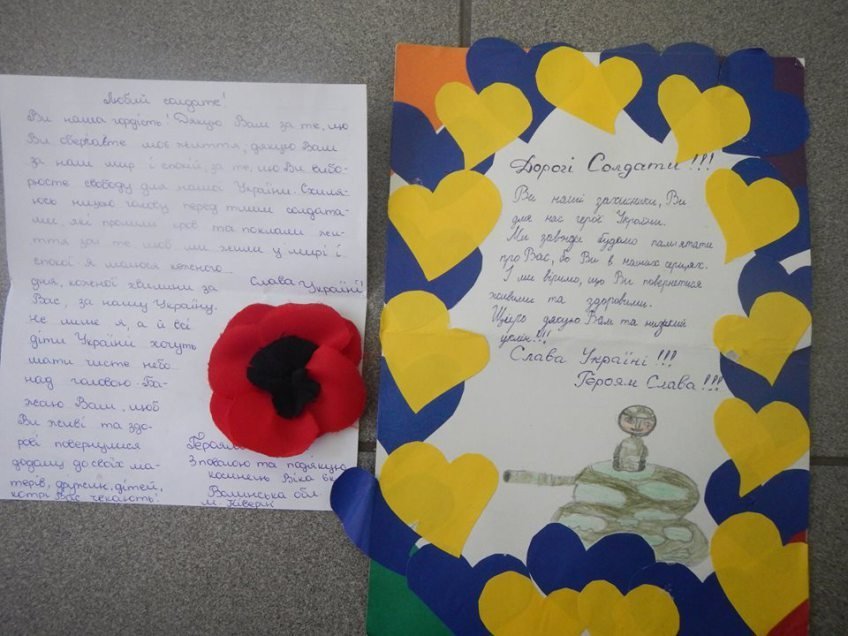 Любий солдате!
Ви наша гордість! Дякую Вам за те, що
Ви оберігаєте моє життя, дякую Вам
за наш мир і спокій, за те, що Ви вибо-
рюєте свободу для нашої України. Схиля-
юсь низько голову перед тими солдата-
ми, які пролили кров та поклали жи-
ття за те щоб ми жили у мирі і
спокої я молюся кожного...
дня, кожної хвилини за
Вас, за нашу Україну.
Не лише я, а й всі
діти України хочуть
мати чисте небо
над головою. Ба-
жаю Вам, щоб
Ви живі та здо-
рові повернулися
додому до своїх ма-
терів, дружин, дітей,
котрі Вас чекають!
Слава Україні!
З повагою та подякую
Віка
Волинська обл
м. Ківерці
Дорогі Солдати!!!
Ви наші захисники, Ви
для нас герої України.
Ми завжди будемо пам'ятати
про Вас, бо Ви в наших серцях.
І ми віримо, що Ви повернетеся
живими та здоровими.
Щиро дякую Вам та низький
уклін!!!
Слава Україні!!!
Героям Слава!!!